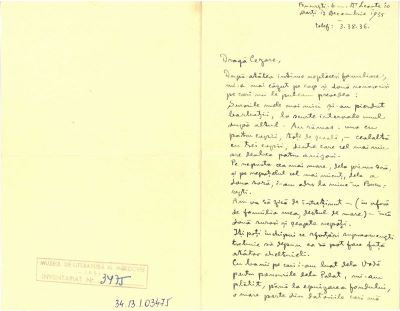 București 6 – Str. Leonte 10
Marți 17 Decembrie 1935
telef: 3.38.36.
Dragă Cezare,
După atâtea intime neplăceri familiare,
mi-a mai căzut pe cap și două nenorociri
pe cari nu le puteam prevedea:
Surorile mele mai mici și-au pierdut
bărbații, la scurte intervale unul
după altul. Au rămas: una cu
patru copii, toți de școală, – cealaltă
cu trei copii, dintre care cel mai mic
are patru anișori.
Pe nepoata cea mai mare, dela prima soră,
și pe nepoțelul cel mai mic, dela a
doua soră, i-am adus la mine în Bucu-
rești.
Am va să zică de întreținut – (în afară
de familia mea, destul de mare) – încă
două surori și șapte nepoți.
Îți poți închipui ce sforțări supraomenești
trebuie să depun ca să pot face față
atâtor cheltuieli.
Cu banii pe cari i-am luat dela Vodă
pentru panourile dela Palat, mi-am
plătit, până la epuizarea fondului,
o mare parte din datoriile cari mă
MUZEUL DE LITERATURĂ AL MOLDOVEI
IAȘI
INVENTARIAT Nr. 3475
34.13 / 03475